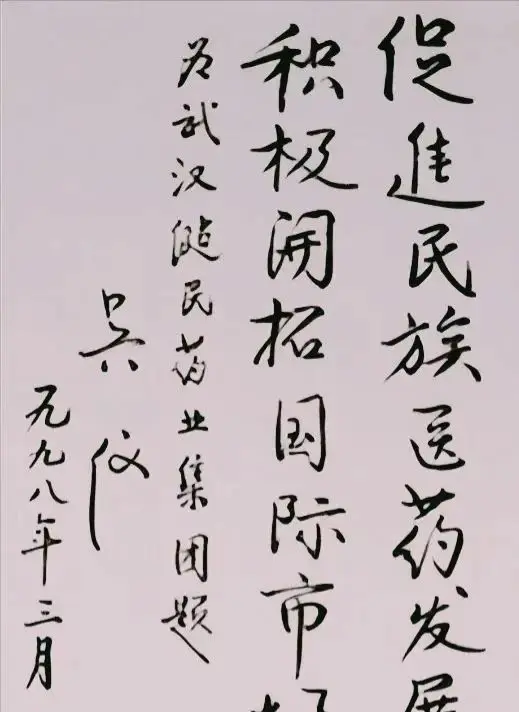 促進民族医药发展
积极开拓国际市场
为武汉健民药业集团题
吴仪
一九九八年三月